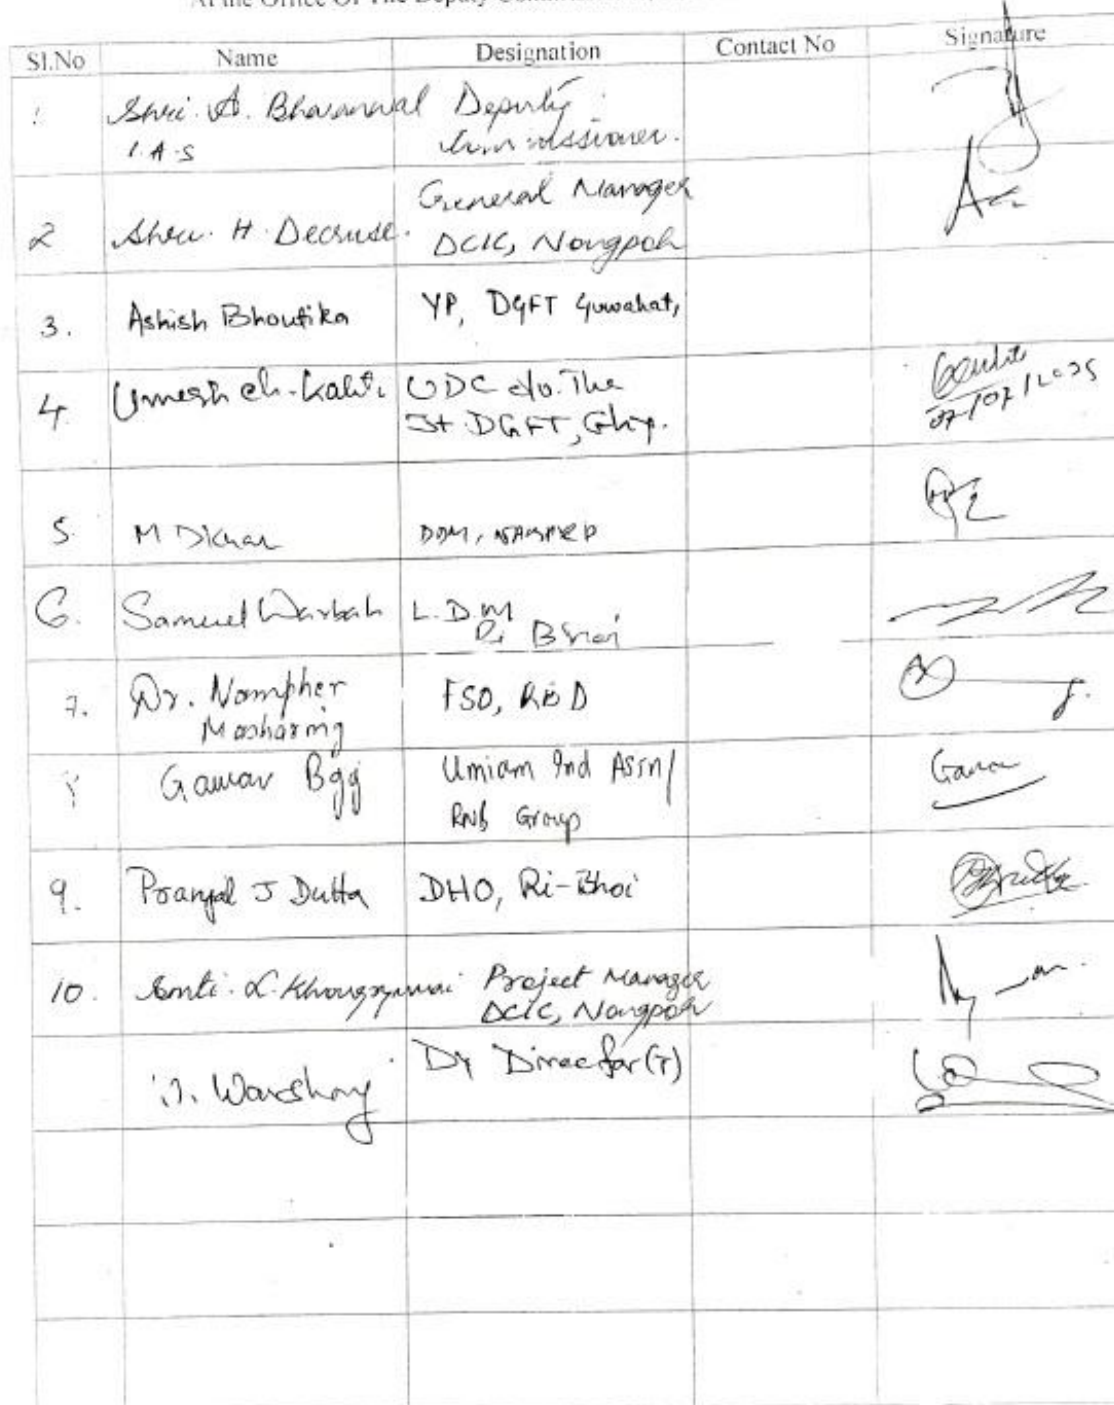 At the Office Of The Deputy
Sl.No Name Designation Contact No Signature
1 Shri. A. Bharanwal Deputy
I.A.S Commissioner.
General Manager
2 Shri. H. Decruse. DCIC, Nongpoh
3. Ashish Bhoutika YP, DGFT Guwahati
4. Umesh ch. Kalita UDC o/o. The
Jt. DGFT, Ghy.
07/07/2025
5. M Dkhar DDM, NABARD
6. Samuel Warbah L.D.M
Ri Bhoi
7. Dr. Nampher FSO, RBD
Masharing
8 Gaurav Bgg Umiam Ind Assn/
RNB Group
Gaurav
9. Pranjal J Dutta DHO, Ri-Bhoi
10. Smti. L. Project Manager
DCIC, Nongpoh
Warshong Dy Director (T)